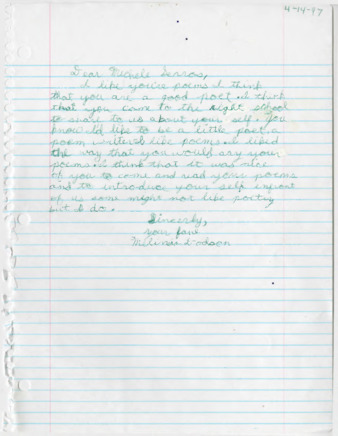 4-14-97
Dear Michele Serros,
I like you're poems. I think
that you are a good poet. I think
that you came to the right school
to share to us about your self. You
know I'd like to be a little poet, a
poem writer. I like poems. I liked
the way that you would say your
poems. I think that it was nice
of you to come and read your poems
and to introduce your self infront
of us some might not like poetry
but I do.
Sincerly,
your fan
Dodson